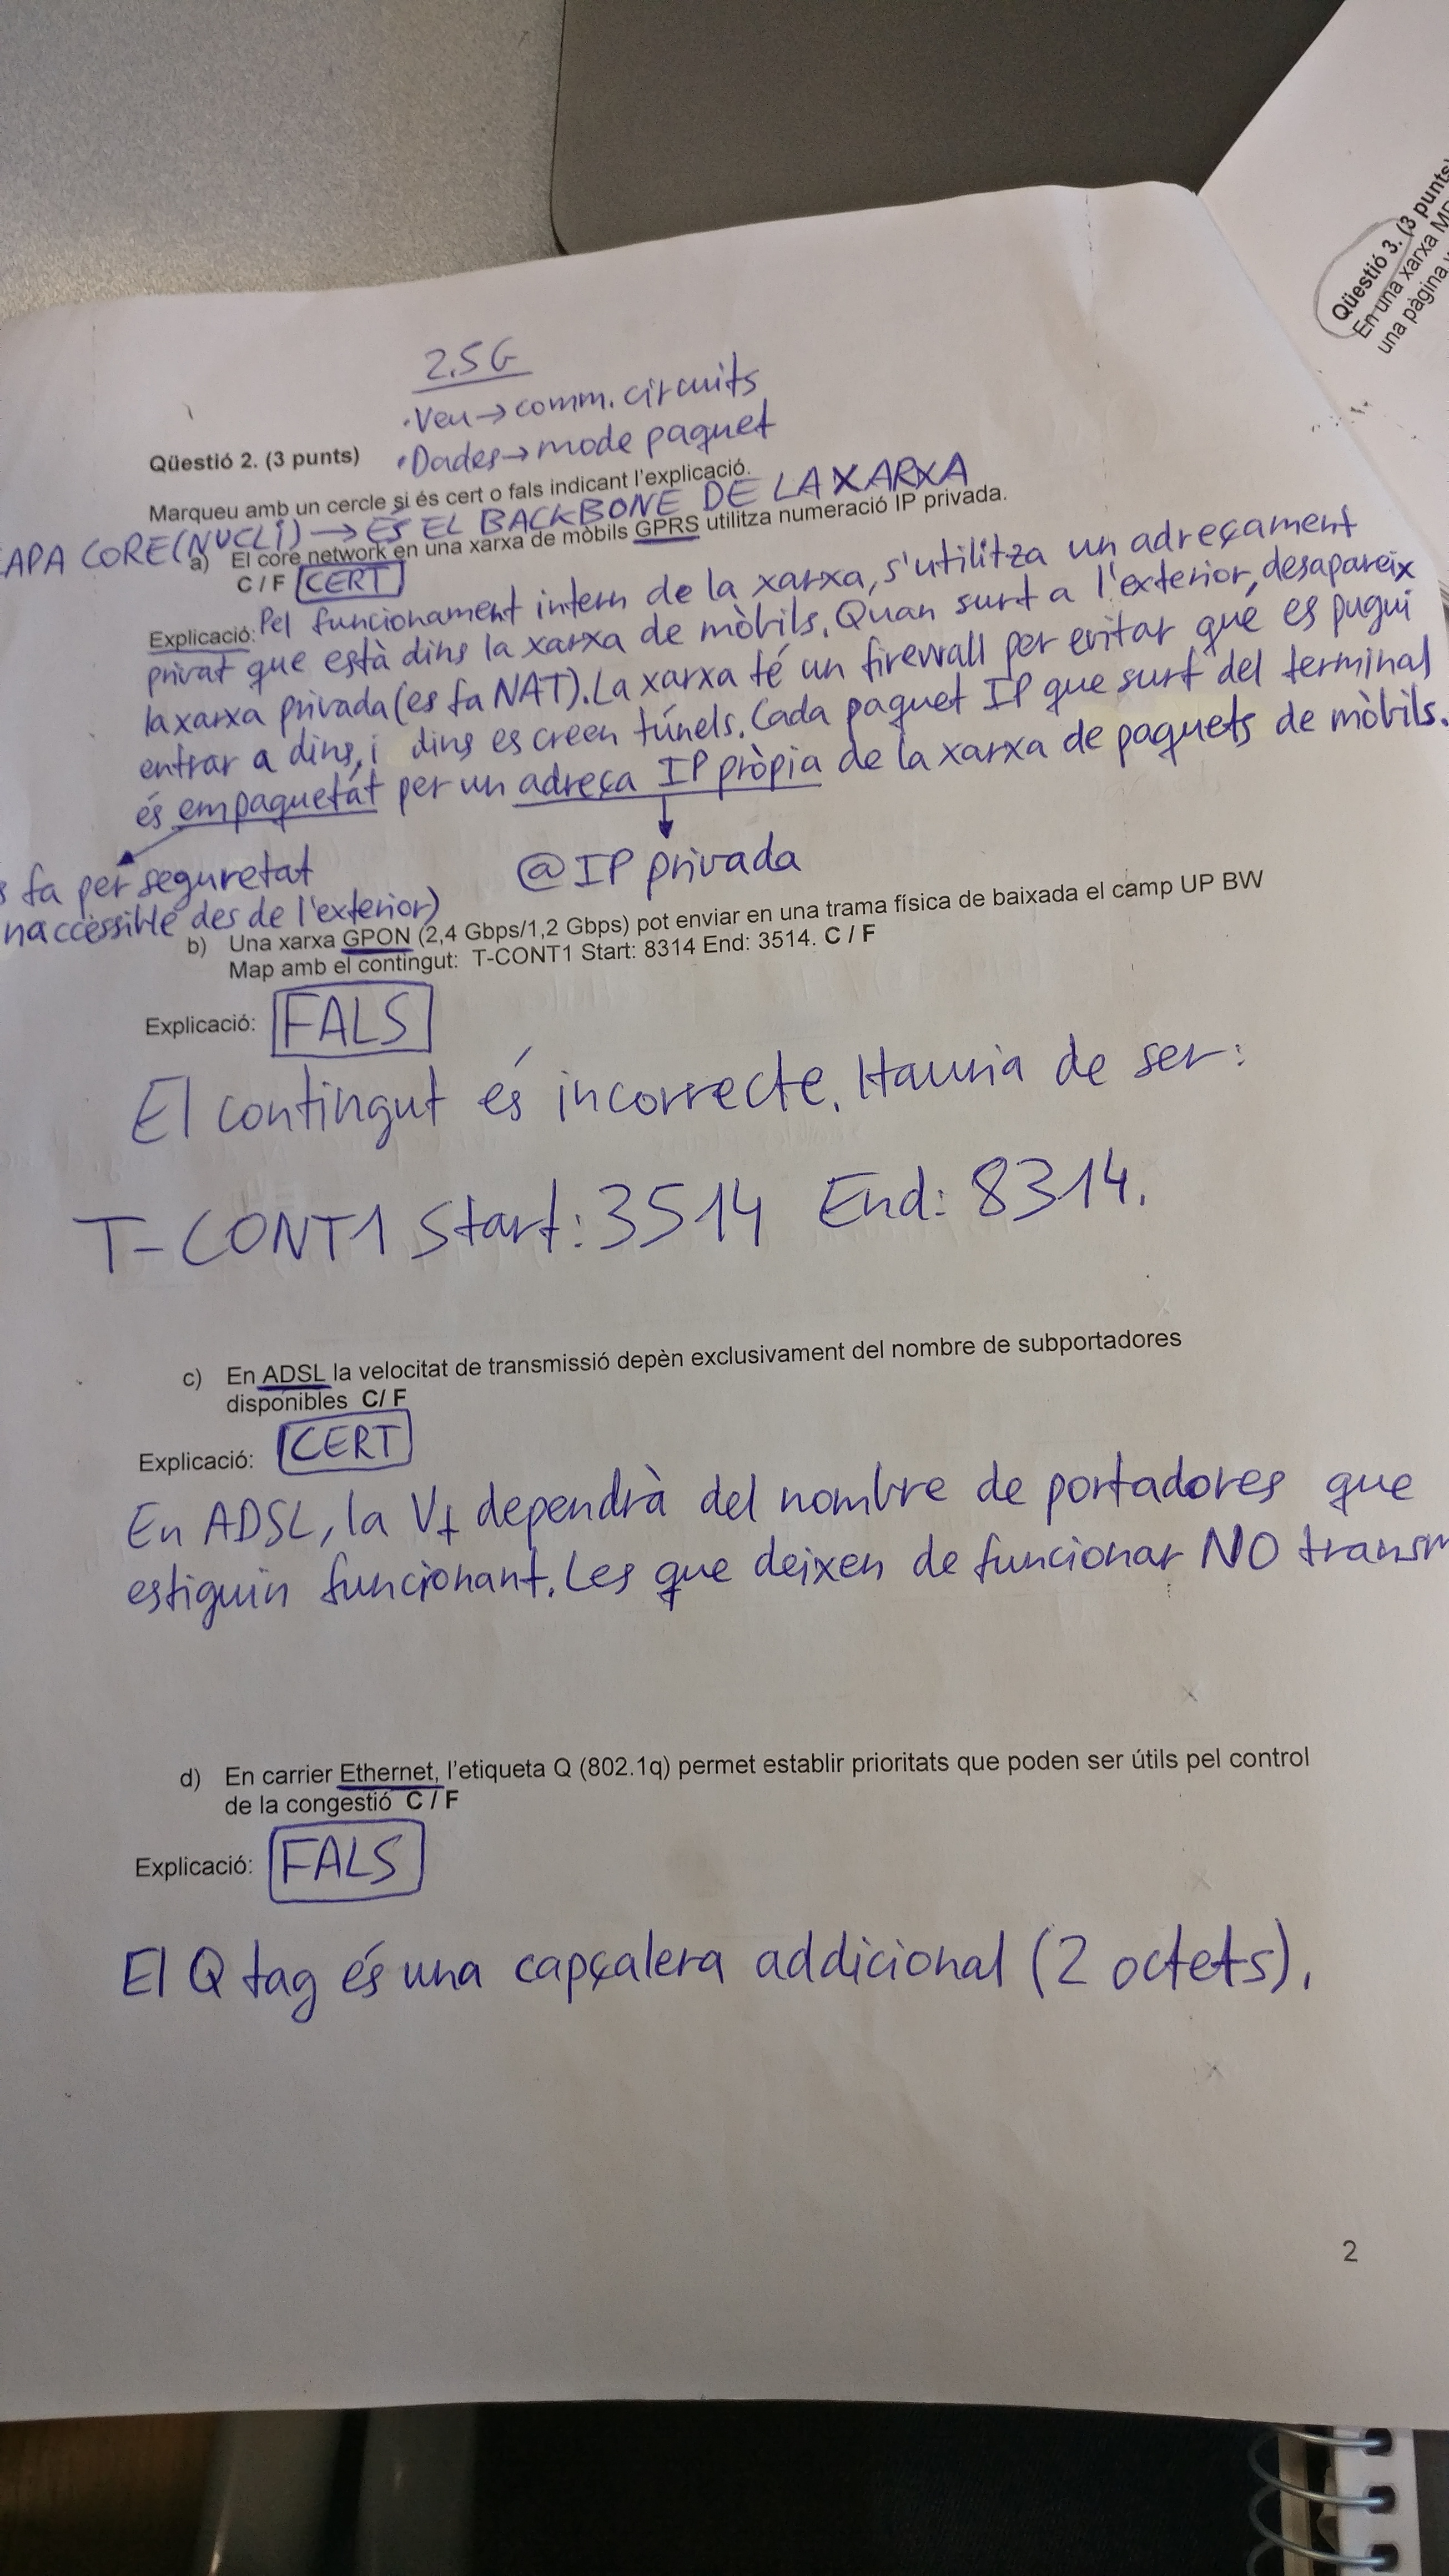 2.5G
·Veu→comm. circuits
·Dades→mode paquet
Qüestió 2. (3 punts)
Marqueu amb un cercle si és cert o fals indicant l'explicació.
CAPA CORE(NUCLI) → ÉS EL BACKBONE DE LA XARXA
a) El core network en una xarxa de mòbils GPRS utilitza numeració IP privada.
C / F CERT
Explicació: Pel funcionament intern de la xarxa, s'utilitza un adreçament
privat que està dins la xarxa de mòbils. Quan surt a l'exterior, desapareix
la xarxa privada (es fa NAT). La xarxa té un firewall per evitar que es pugui
entrar a dins, i dins es creen túnels. Cada paquet IP que surt del terminal
és empaquetat per un adreça IP pròpia de la xarxa de paquets de mòbils.
@IP privada
s fa per seguretat
naccessible des de l'exterior)
b) Una xarxa GPON (2,4 Gbps/1,2 Gbps) pot enviar en una trama física de baixada el camp UP BW
Map amb el contingut: T-CONT1 Start: 8314 End: 3514. C / F
Explicació: FALS
El contingut és incorrecte. Hauria de ser:
T-CONT1 Start: 3514 End: 8314.
c) En ADSL la velocitat de transmissió depèn exclusivament del nombre de subportadores
disponibles C/ F
Explicació: CERT
En ADSL, la Vt dependrà del nombre de portadores que
estiguin funcionant. Les que deixen de funcionar NO transm
d) En carrier Ethernet, l'etiqueta Q (802.1q) permet establir prioritats que poden ser útils pel control
de la congestió C / F
Explicació: FALS
El Q tag és una capçalera addicional (2 octets).
2
Qüestió 3. (3 punts)
En una xarxa M
una pàgina